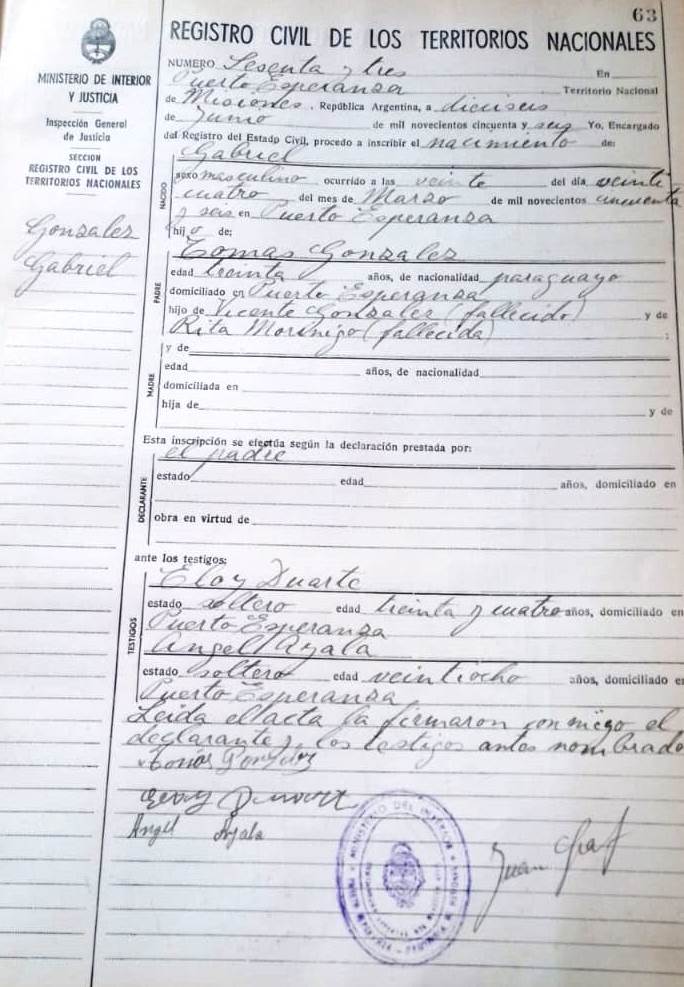 63
REGISTRO CIVIL DE LOS TERRITORIOS NACIONALES
MINISTERIO DE INTERIOR
Y JUSTICIA
Inspección General
de Justicia
SECCION
REGISTRO CIVIL DE LOS
TERRITORIOS NACIONALES
Gonzalez
Gabriel
NUMERO Sesenta y tres En
Puerto Esperanza Territorio Nacional
de Misiones, República Argentina, a dieciseis
de Junio de mil novecientos cincuenta y seis Yo, Encargado
del Registro del Estado Civil, procedo a inscribir el nacimiento de:
Gabriel
NACIDO
sexo masculino ocurrido a las veinte del día veinti
cuatro del mes de Marzo de mil novecientos cincuenta
y seis en Puerto Esperanza
hijo de;
Tomas Gonzalez
PADRE
edad treinta años, de nacionalidad paraguayo
domiciliado en Puerto Esperanza
hijo de Vicente Gonzalez (fallecido) y de
Rita Morinigo (fallecida) ;
MADRE
y de
edad años, de nacionalidad
domiciliada en
hija de y de
Esta inscripción se efectúa según la declaración prestada por:
el padre
DECLARANTE
estado edad años, domiciliado en
obra en virtud de
ante los testigos:
Eloy Duarte
TESTIGOS
estado soltero edad treinta y cuatro años, domiciliado en
Puerto Esperanza
Angel Ayala
estado soltero edad veintiocho años, domiciliado en
Puerto Esperanza
Leida el acta la firmaron conmigo el
declarante y los testigos antes nombrado
Tomás Gonzalez
Eloy Duarte
Angel Ayala
MINISTERIO DEL INTERIOR
Juan Graf